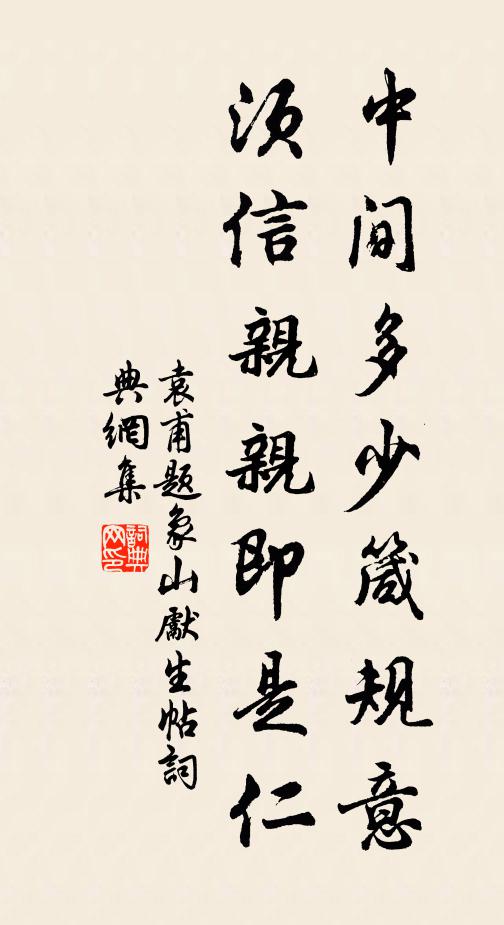 中间多少箴规意
须信親親即是仁
袁甫题象山獻生帖詞
典網集
詞典网印